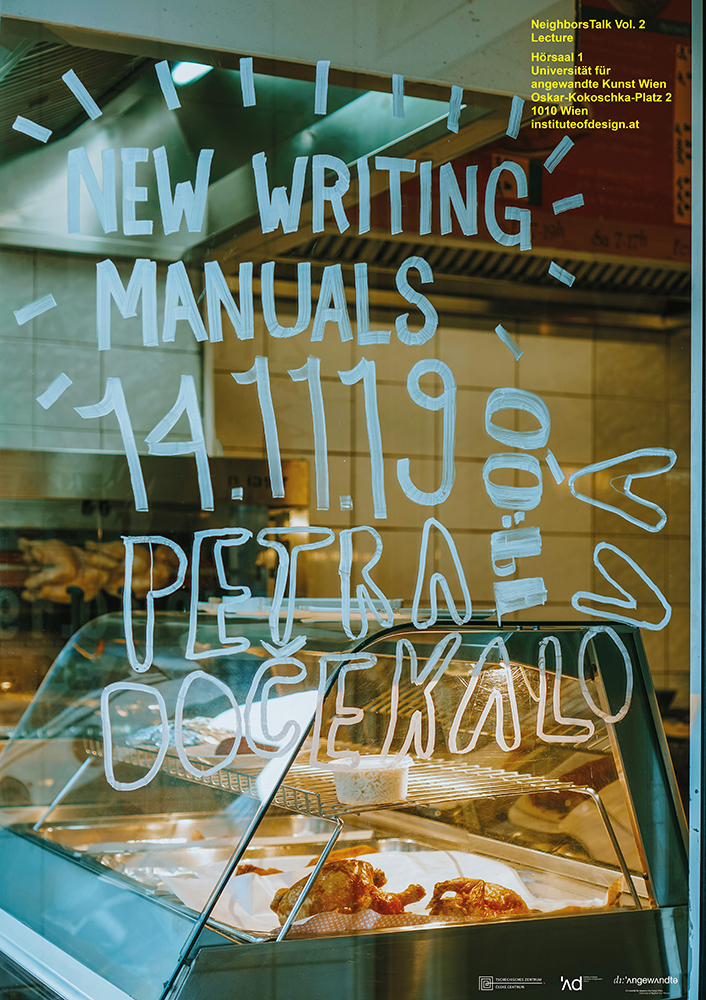 NeighborsTalk Vol. 2
Lecture
Hörsaal 1
Universität für
angewandte Kunst Wien
Oskar-Kokoschka-Platz 2
1010 Wien
instituteofdesign.at
NEW WRITING
MANUALS
14.11.19
PETRA
DOČEKALOVÁ
Sa 7-17h
TSCHECHISCHES ZENTRUM
ČESKÉ CENTRUM
'Ad
di:'Angewandte